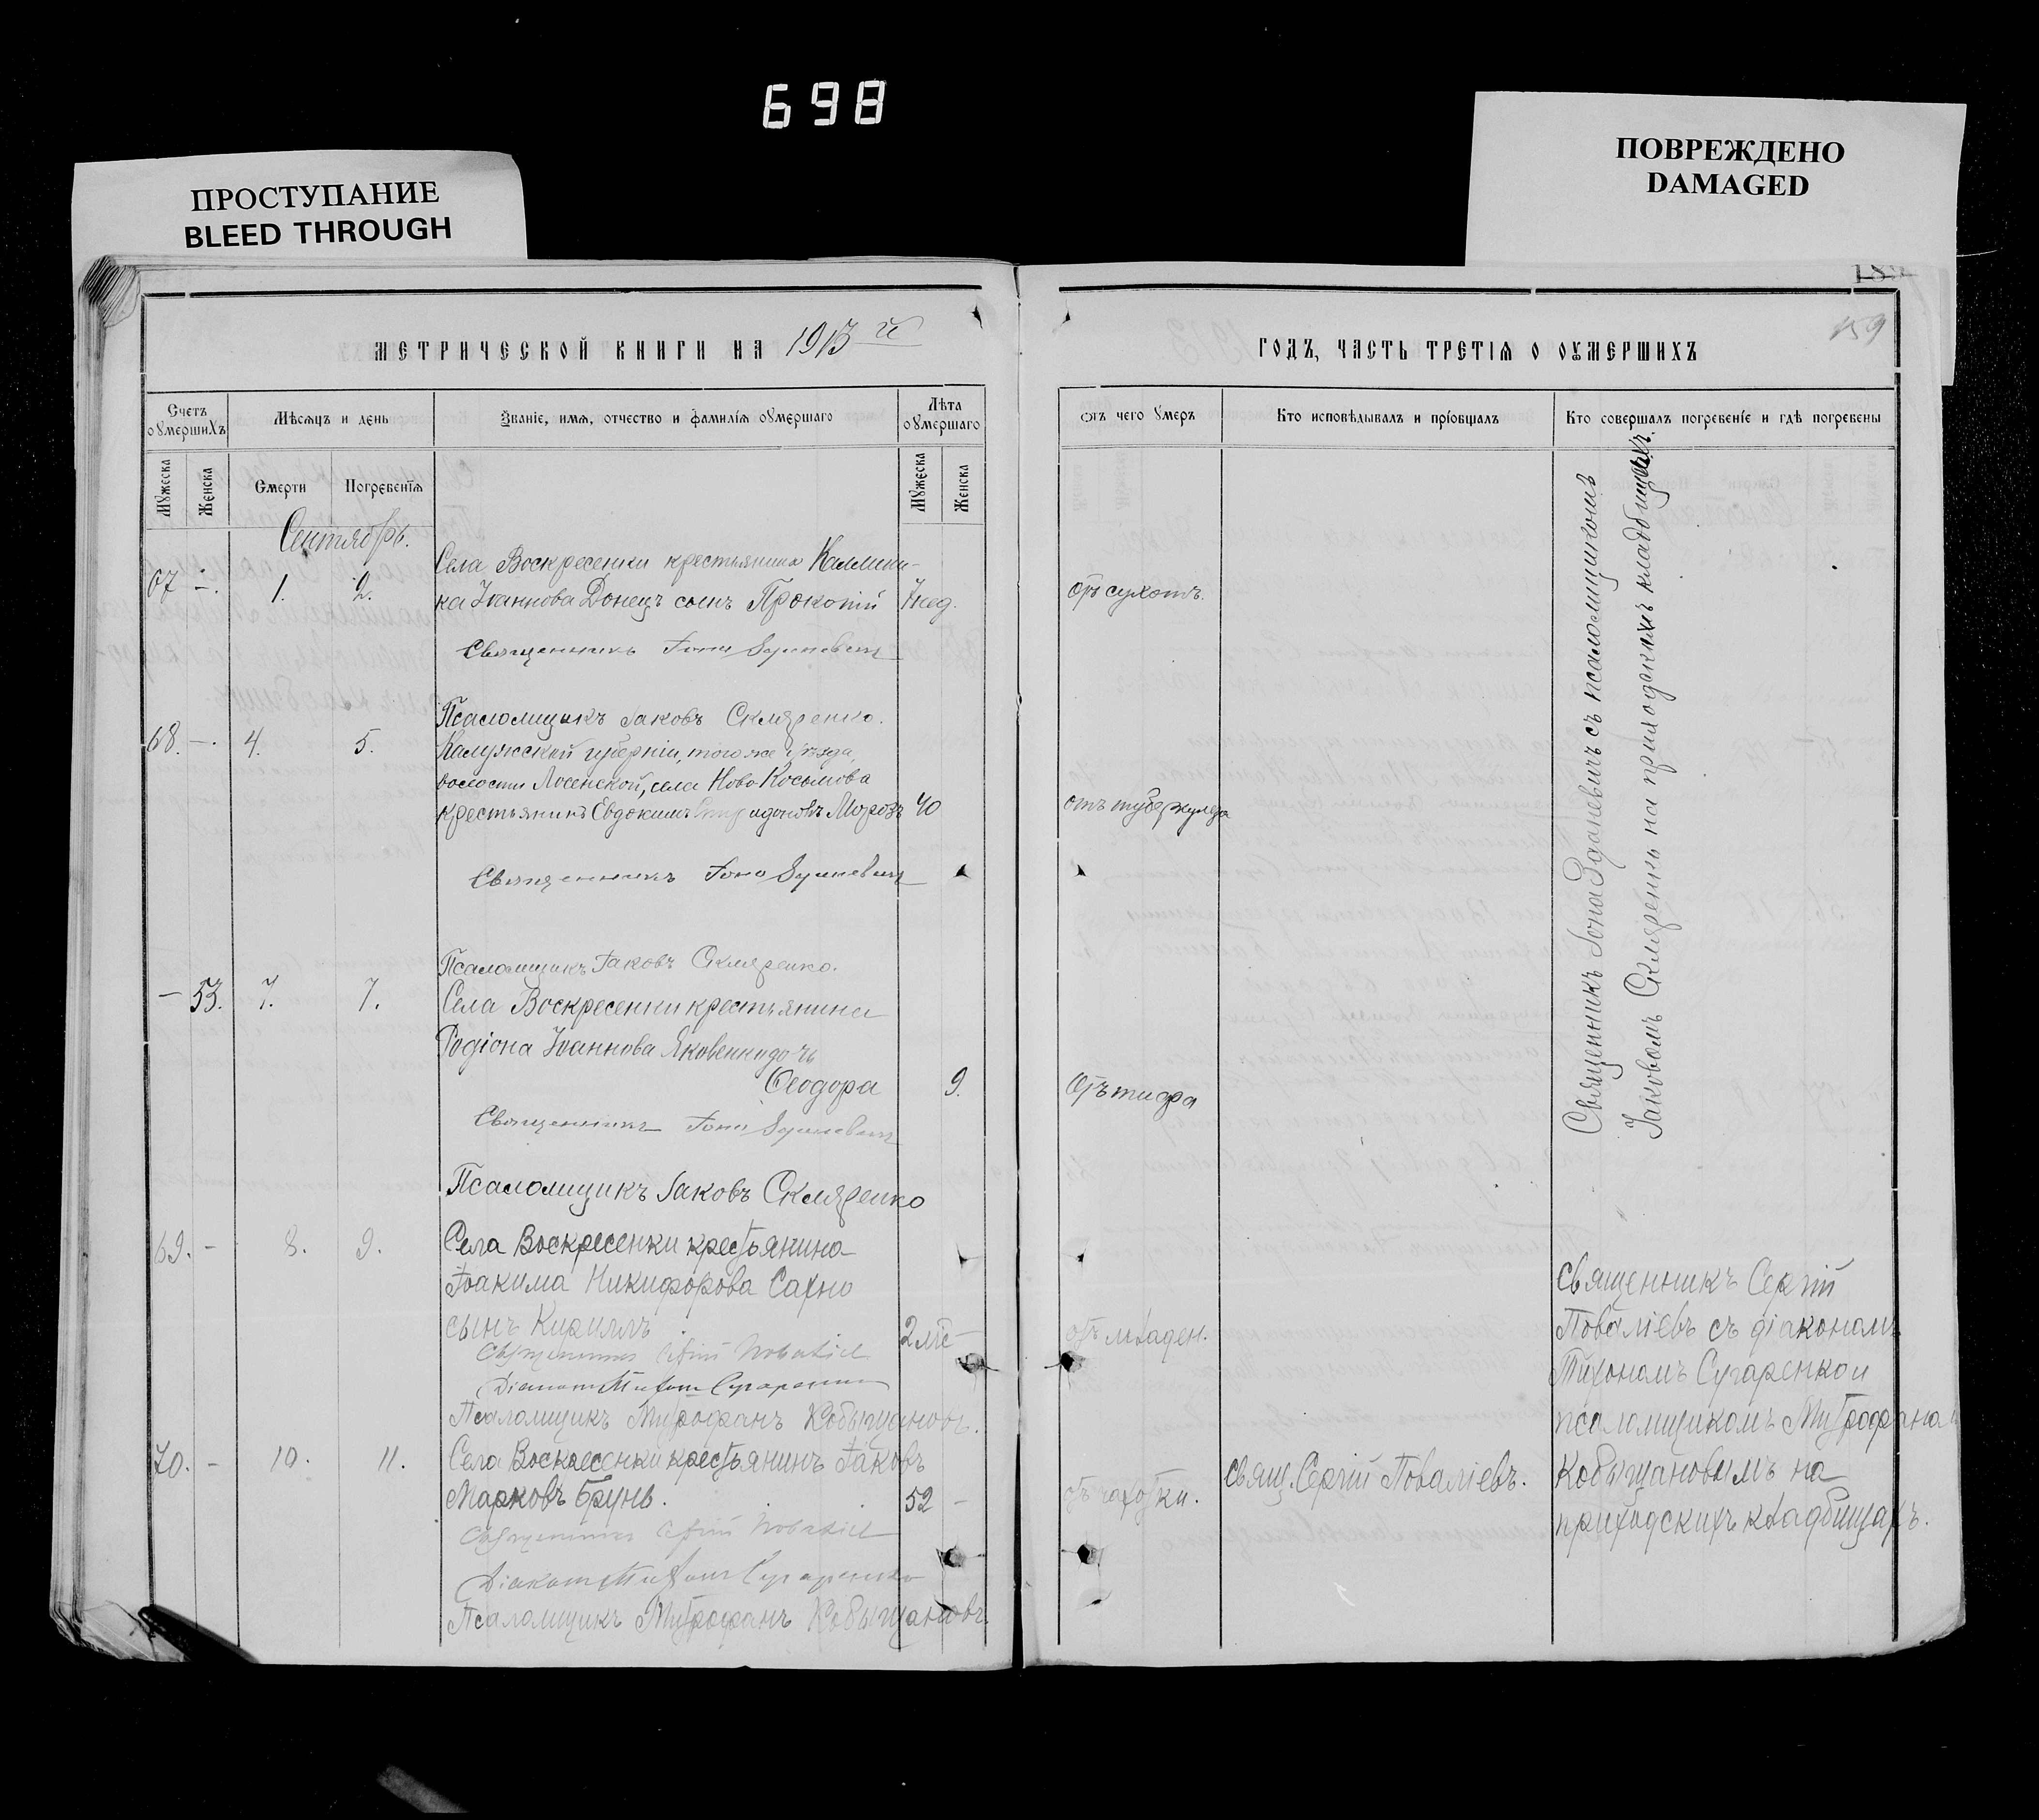 698
ПРОСТУПАНИЕ
BLEED THROUGH
ПОВРЕЖДЕНО
DAMAGED
189
159
МЕТРИЧЕСКОЙ КНИГИ НА 1913 й
Счетъ оумершихъ
Мѣсяцъ и день
Званіе, имя, отчество и фамилія оумершаго
Лѣта оумершаго
Мужеска
Женска
Смерти
Погребенія
Мужеска
Женска
Сентябрь.
67 - 1. 2.
Села Воскресенки крестьянина Каллини-
ка Іоаннова Донецъ сынъ Прокопій 7 нед.
Священникъ Іона Зданевичъ
Псаломщикъ Іаковъ Скляренко.
68. - 4. 5.
Калужской губерніи, того же уѣзда,
волости Лосенской, села Ново Косьмова
крестьянинъ Евдокимъ Морозъ 40
Священникъ Іона Зданевичъ
Псаломщикъ Іаковъ Скляренко.
- 53. 7. 7.
Села Воскресенки крестьянина
Родіона Іоаннова Яковенко дочь
Ѳеодора 9.
Священникъ Іона Зданевичъ
Псаломщикъ Іаковъ Скляренко
69. - 8. 9.
Села Воскресенки крестьянина
Іоакима Никифорова Сахно
сынъ Кириллъ 2 мѣс -
Священникъ Сергій Поваліев
Діаконъ Тихонъ Сугаренко
Псаломщикъ Митрофанъ Кобыщановъ.
70. - 10. 11.
Села Воскресенки крестьянинъ Іаковъ
Марковъ Брунь. 52 -
Священникъ Сергій Поваліев
Діаконъ Тихонъ Сугаренко
Псаломщикъ Митрофанъ Кобыщановъ.
ГОДЪ, ЧАСТЬ ТРЕТІЯ О ОУМЕРШИХЪ
Отъ чего умеръ
Кто исповѣдывалъ и пріобщалъ
Кто совершалъ погребеніе и гдѣ погребены
отъ сухотъ.
отъ туберкулеза
Отъ тифа
отъ младен.
отъ чахотки.
свящ. Сергій Поваліевъ.
Священникъ Іона Зданевичъ съ псаломщикомъ
Іаковомъ Скляренко на приходскихъ кладбищахъ.
священникъ Сергій
Поваліевъ съ діакономъ
Тихономъ Сугаренко и
псаломщикомъ Митрофаном
Кобыщановымъ на
приходскихъ кладбищахъ.